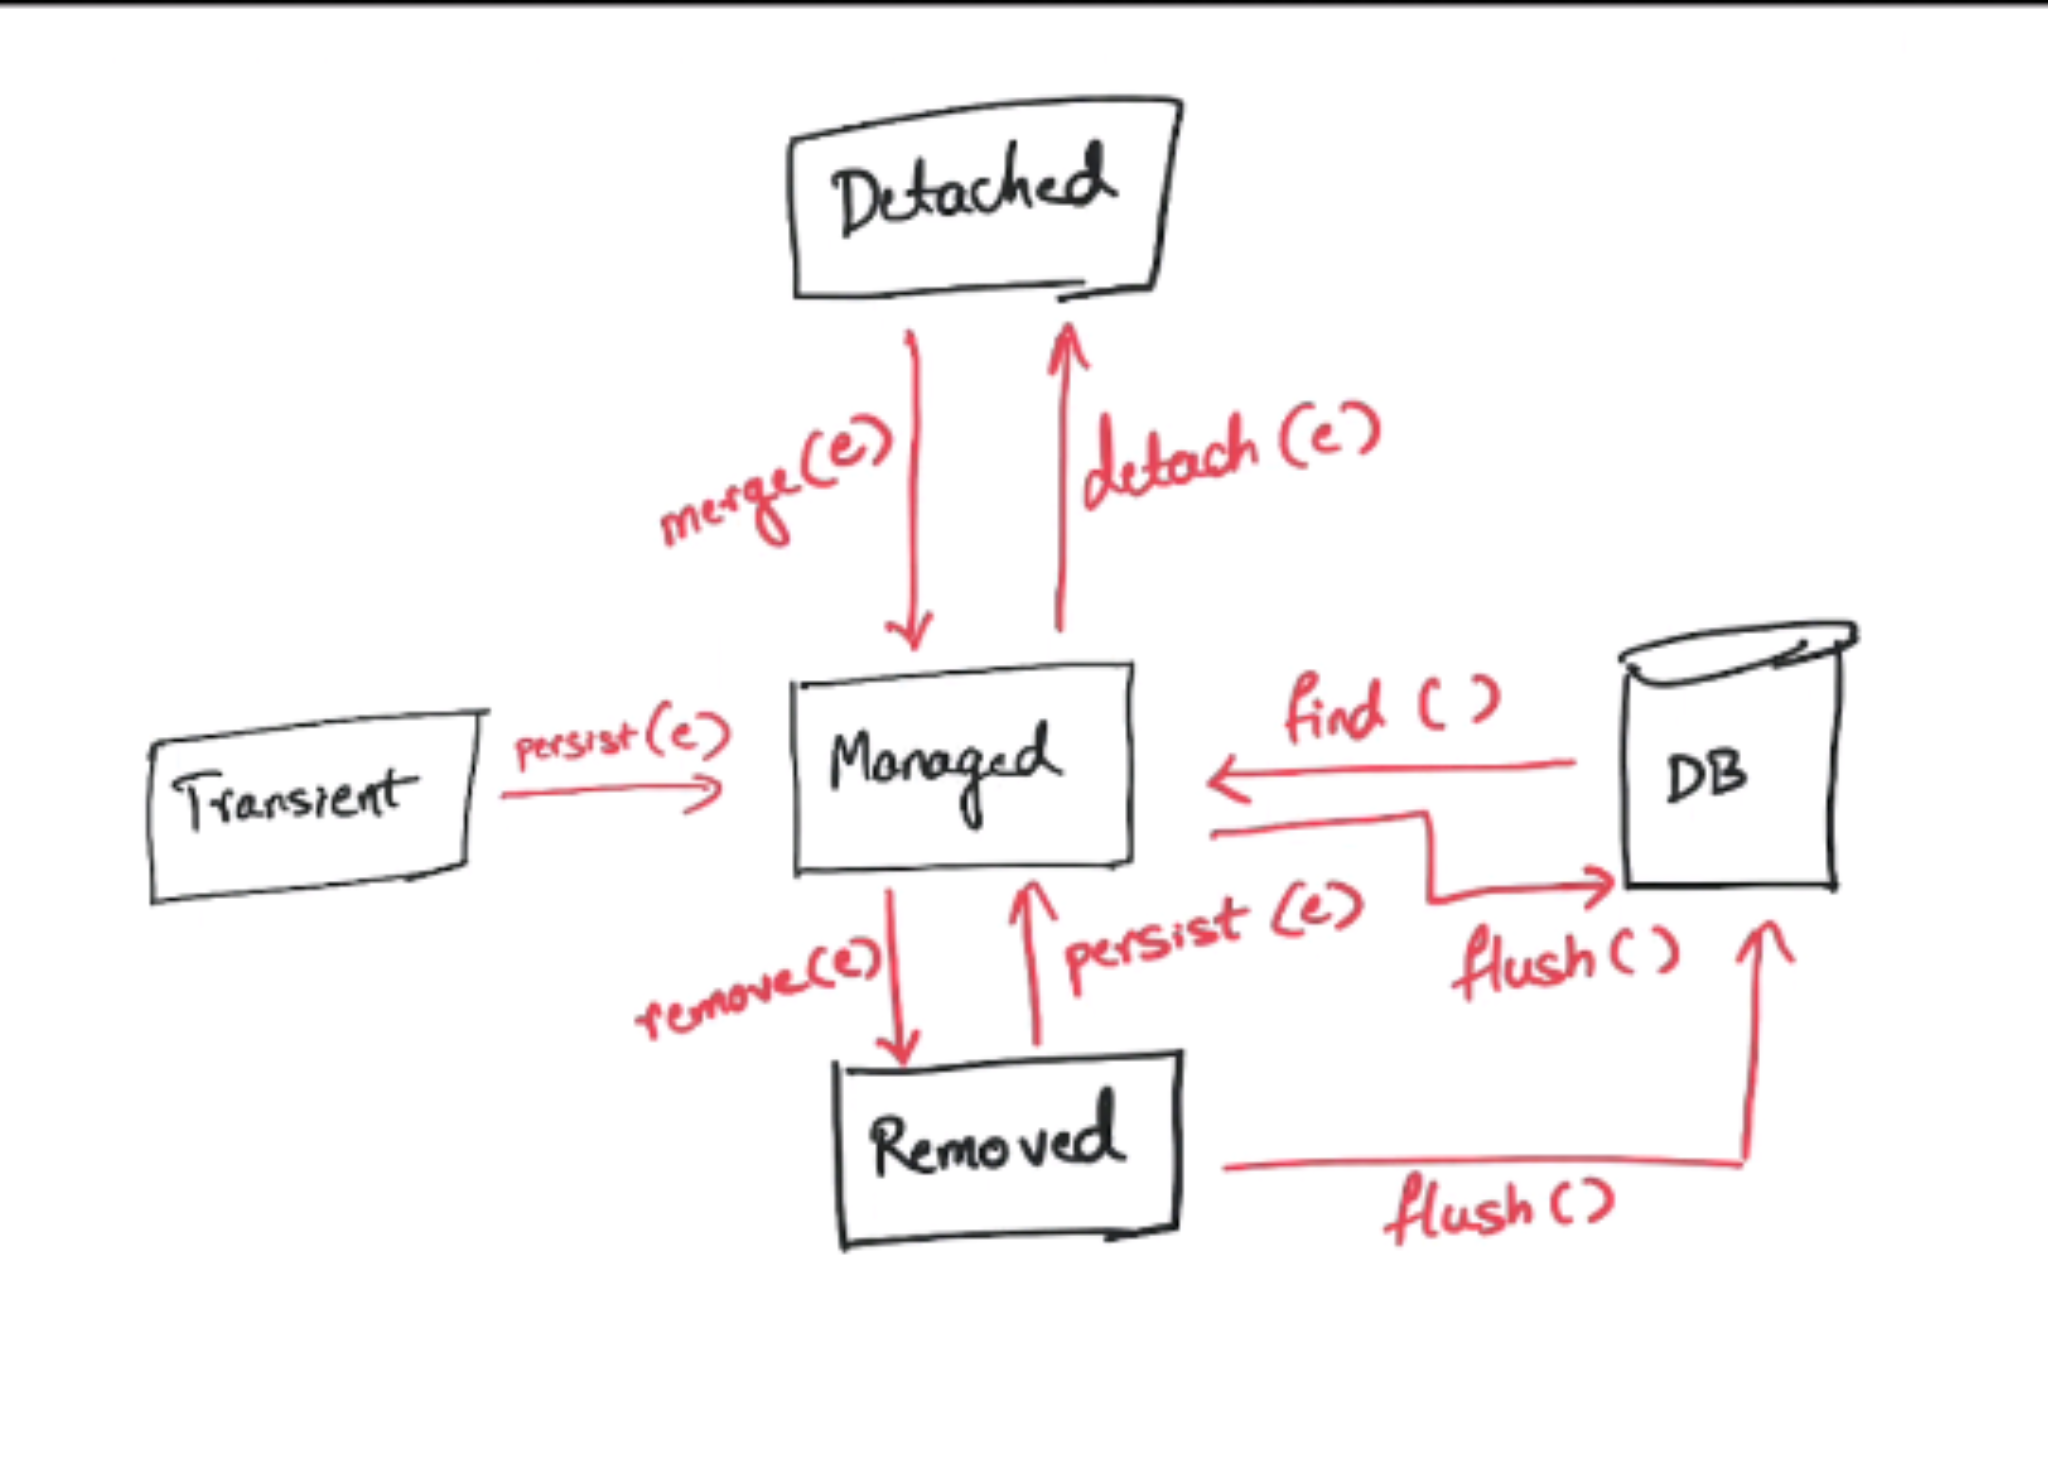 Detached
merge(e)
detach (e)
Transient
persist(e)
Managed
find ( )
DB
flush ( )
remove(e)
persist (e)
Removed
flush ( )